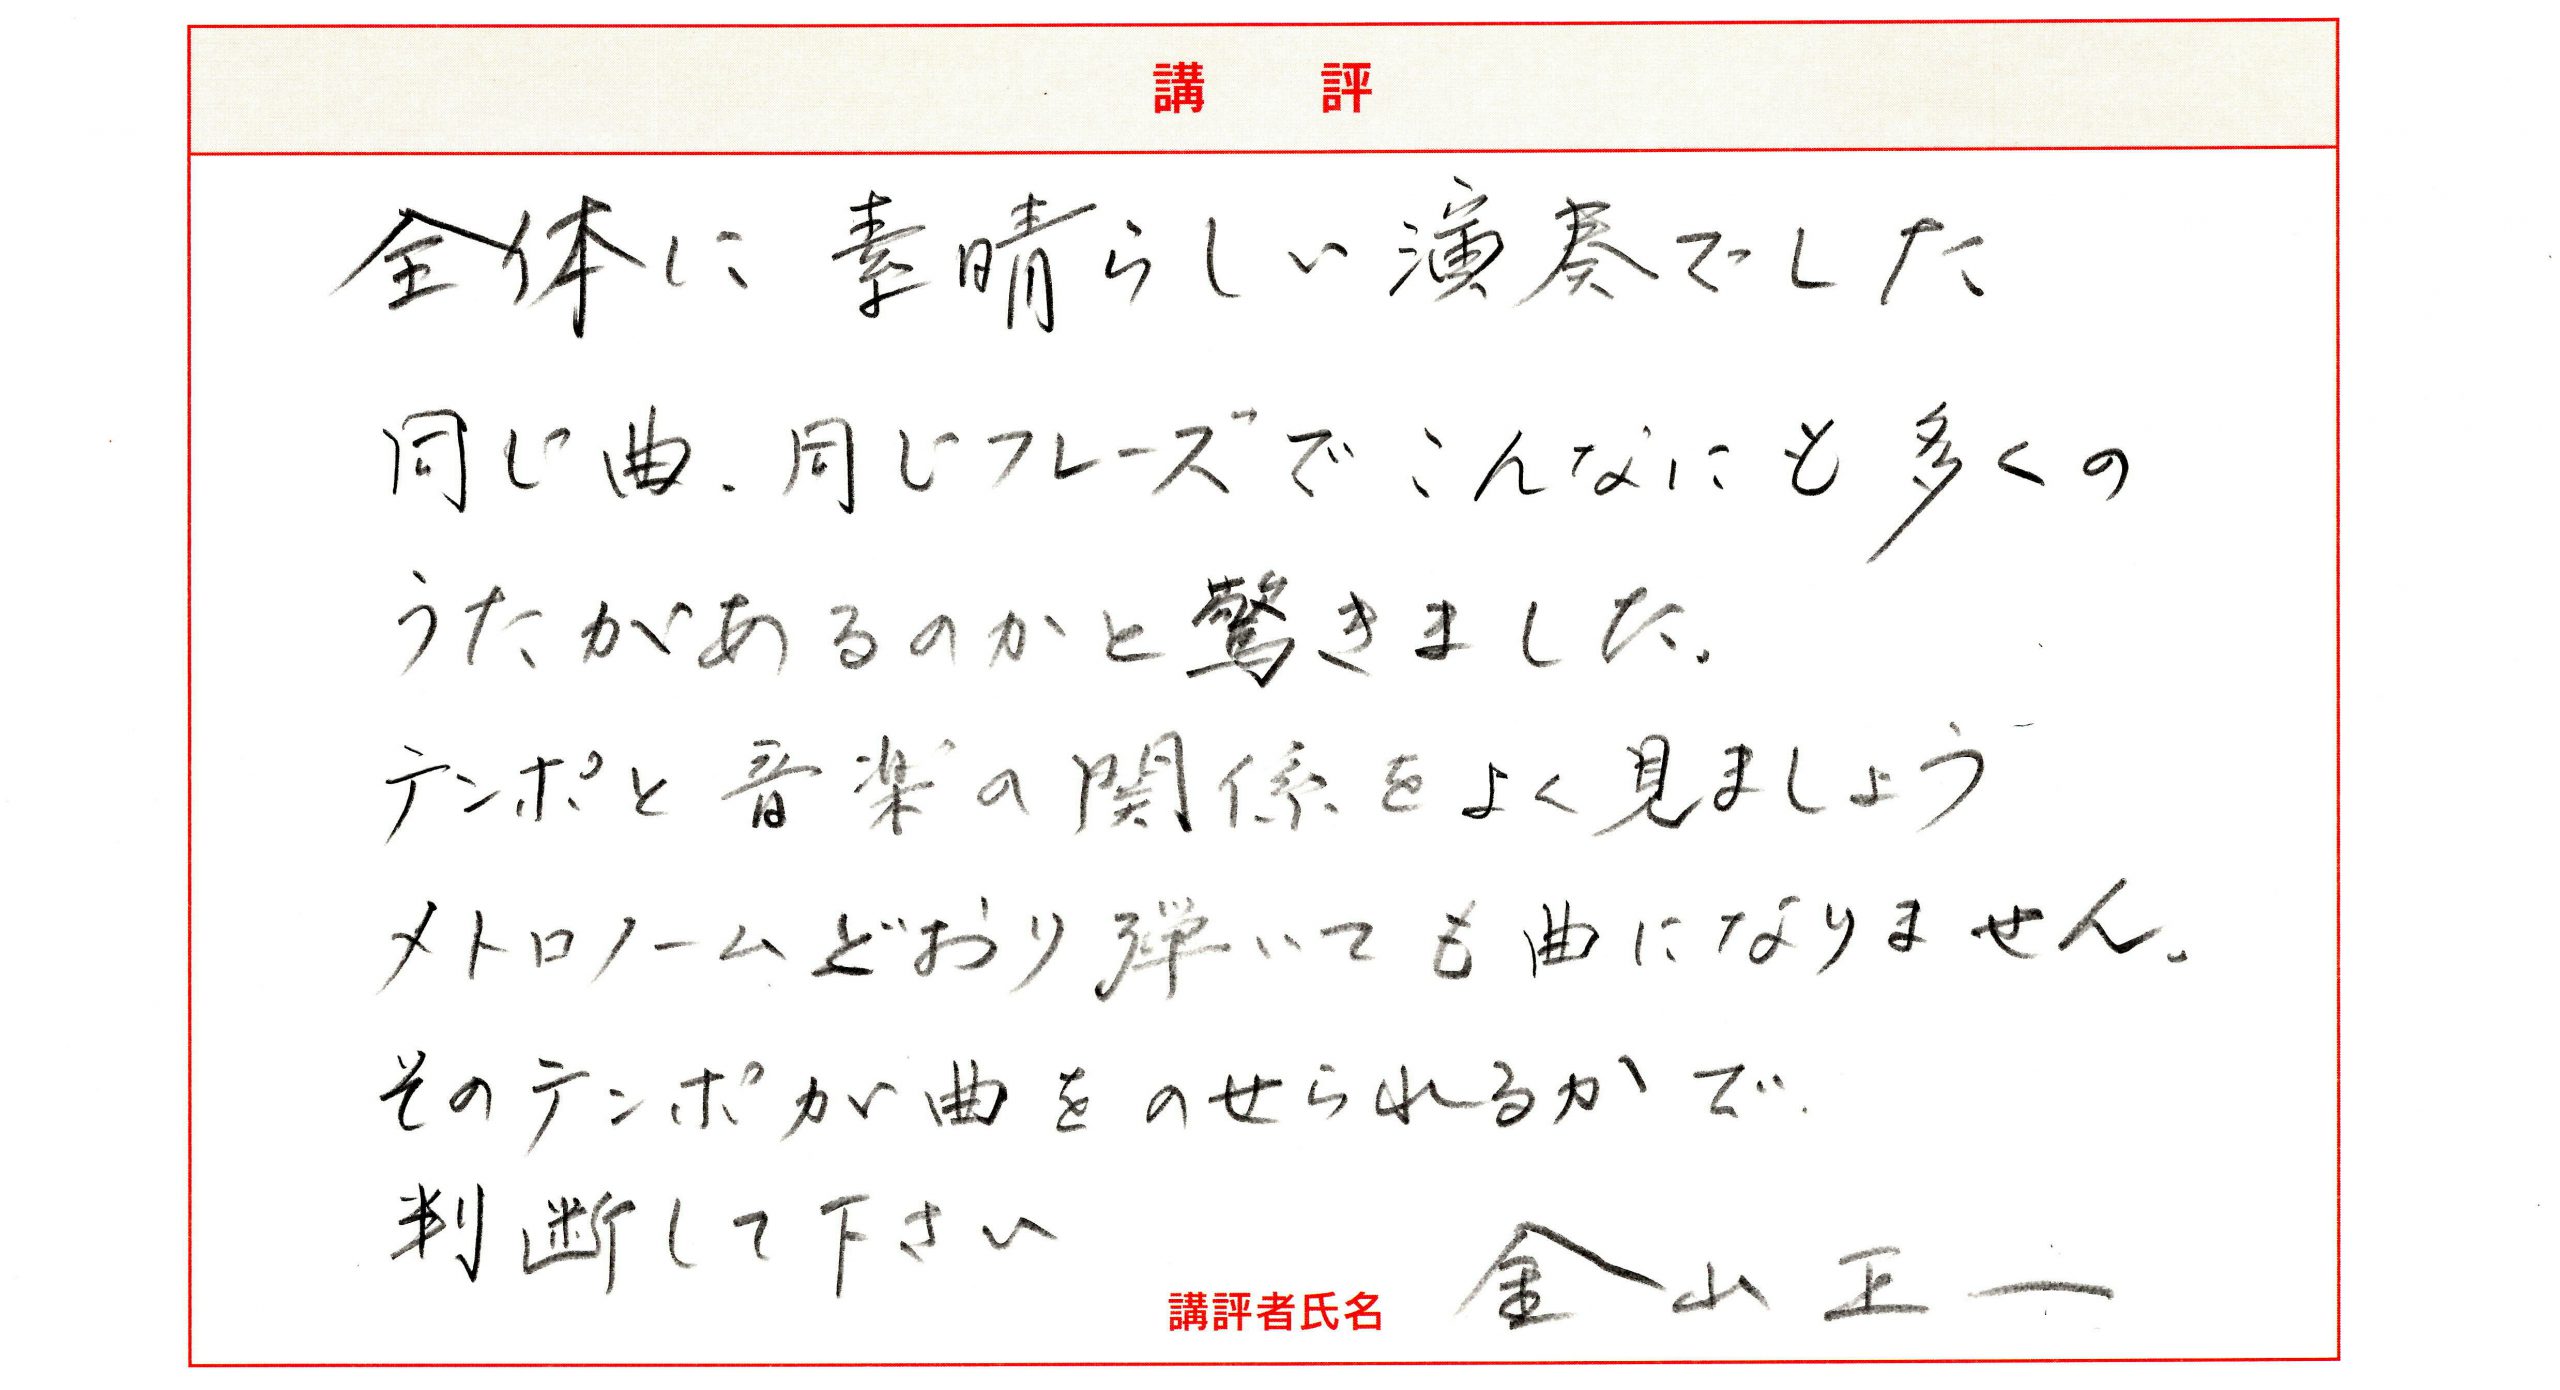 講評
全体に素晴らしい演奏でした
同じ曲、同じフレーズでこんなにも多くの
うたがあるのかと驚きました。
テンポと音楽の関係をよく見ましょう
メトロノームどおり弾いても曲になりません。
そのテンポが曲をのせられるかで、
判断して下さい
講評者氏名 金山正一